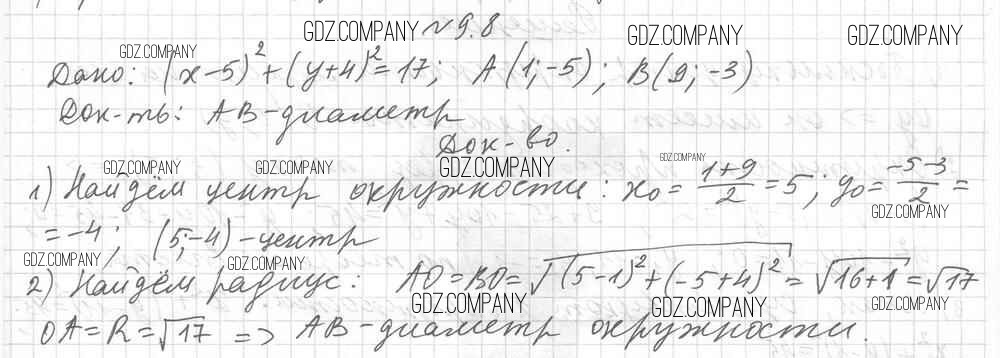 GDZ.COMPANY №9.8 GDZ.COMPANY GDZ.COMPANY
GDZ.COMPANY
Дано: (x-5)²+(y+4)²=17; A(1;-5); B(9;-3)
Док-ть: AB-диаметр
Док-во.
GDZ.COMPANY GDZ.COMPANY GDZ.COMPANY GDZ.COMPANY
1) Найдём центр окружности: x₀ = (1+9)/2 = 5; y₀ = (-5-3)/2 =
GDZ.COMPANY
= -4; (5;-4)-центр
GDZ.COMPANY GDZ.COMPANY
2) Найдём радиус: AO=BO=√((5-1)²+(-5+4)²)=√(16+1)=√17
GDZ.COMPANY GDZ.COMPANY GDZ.COMPANY
OA=R=√17 => AB-диаметр окружности.